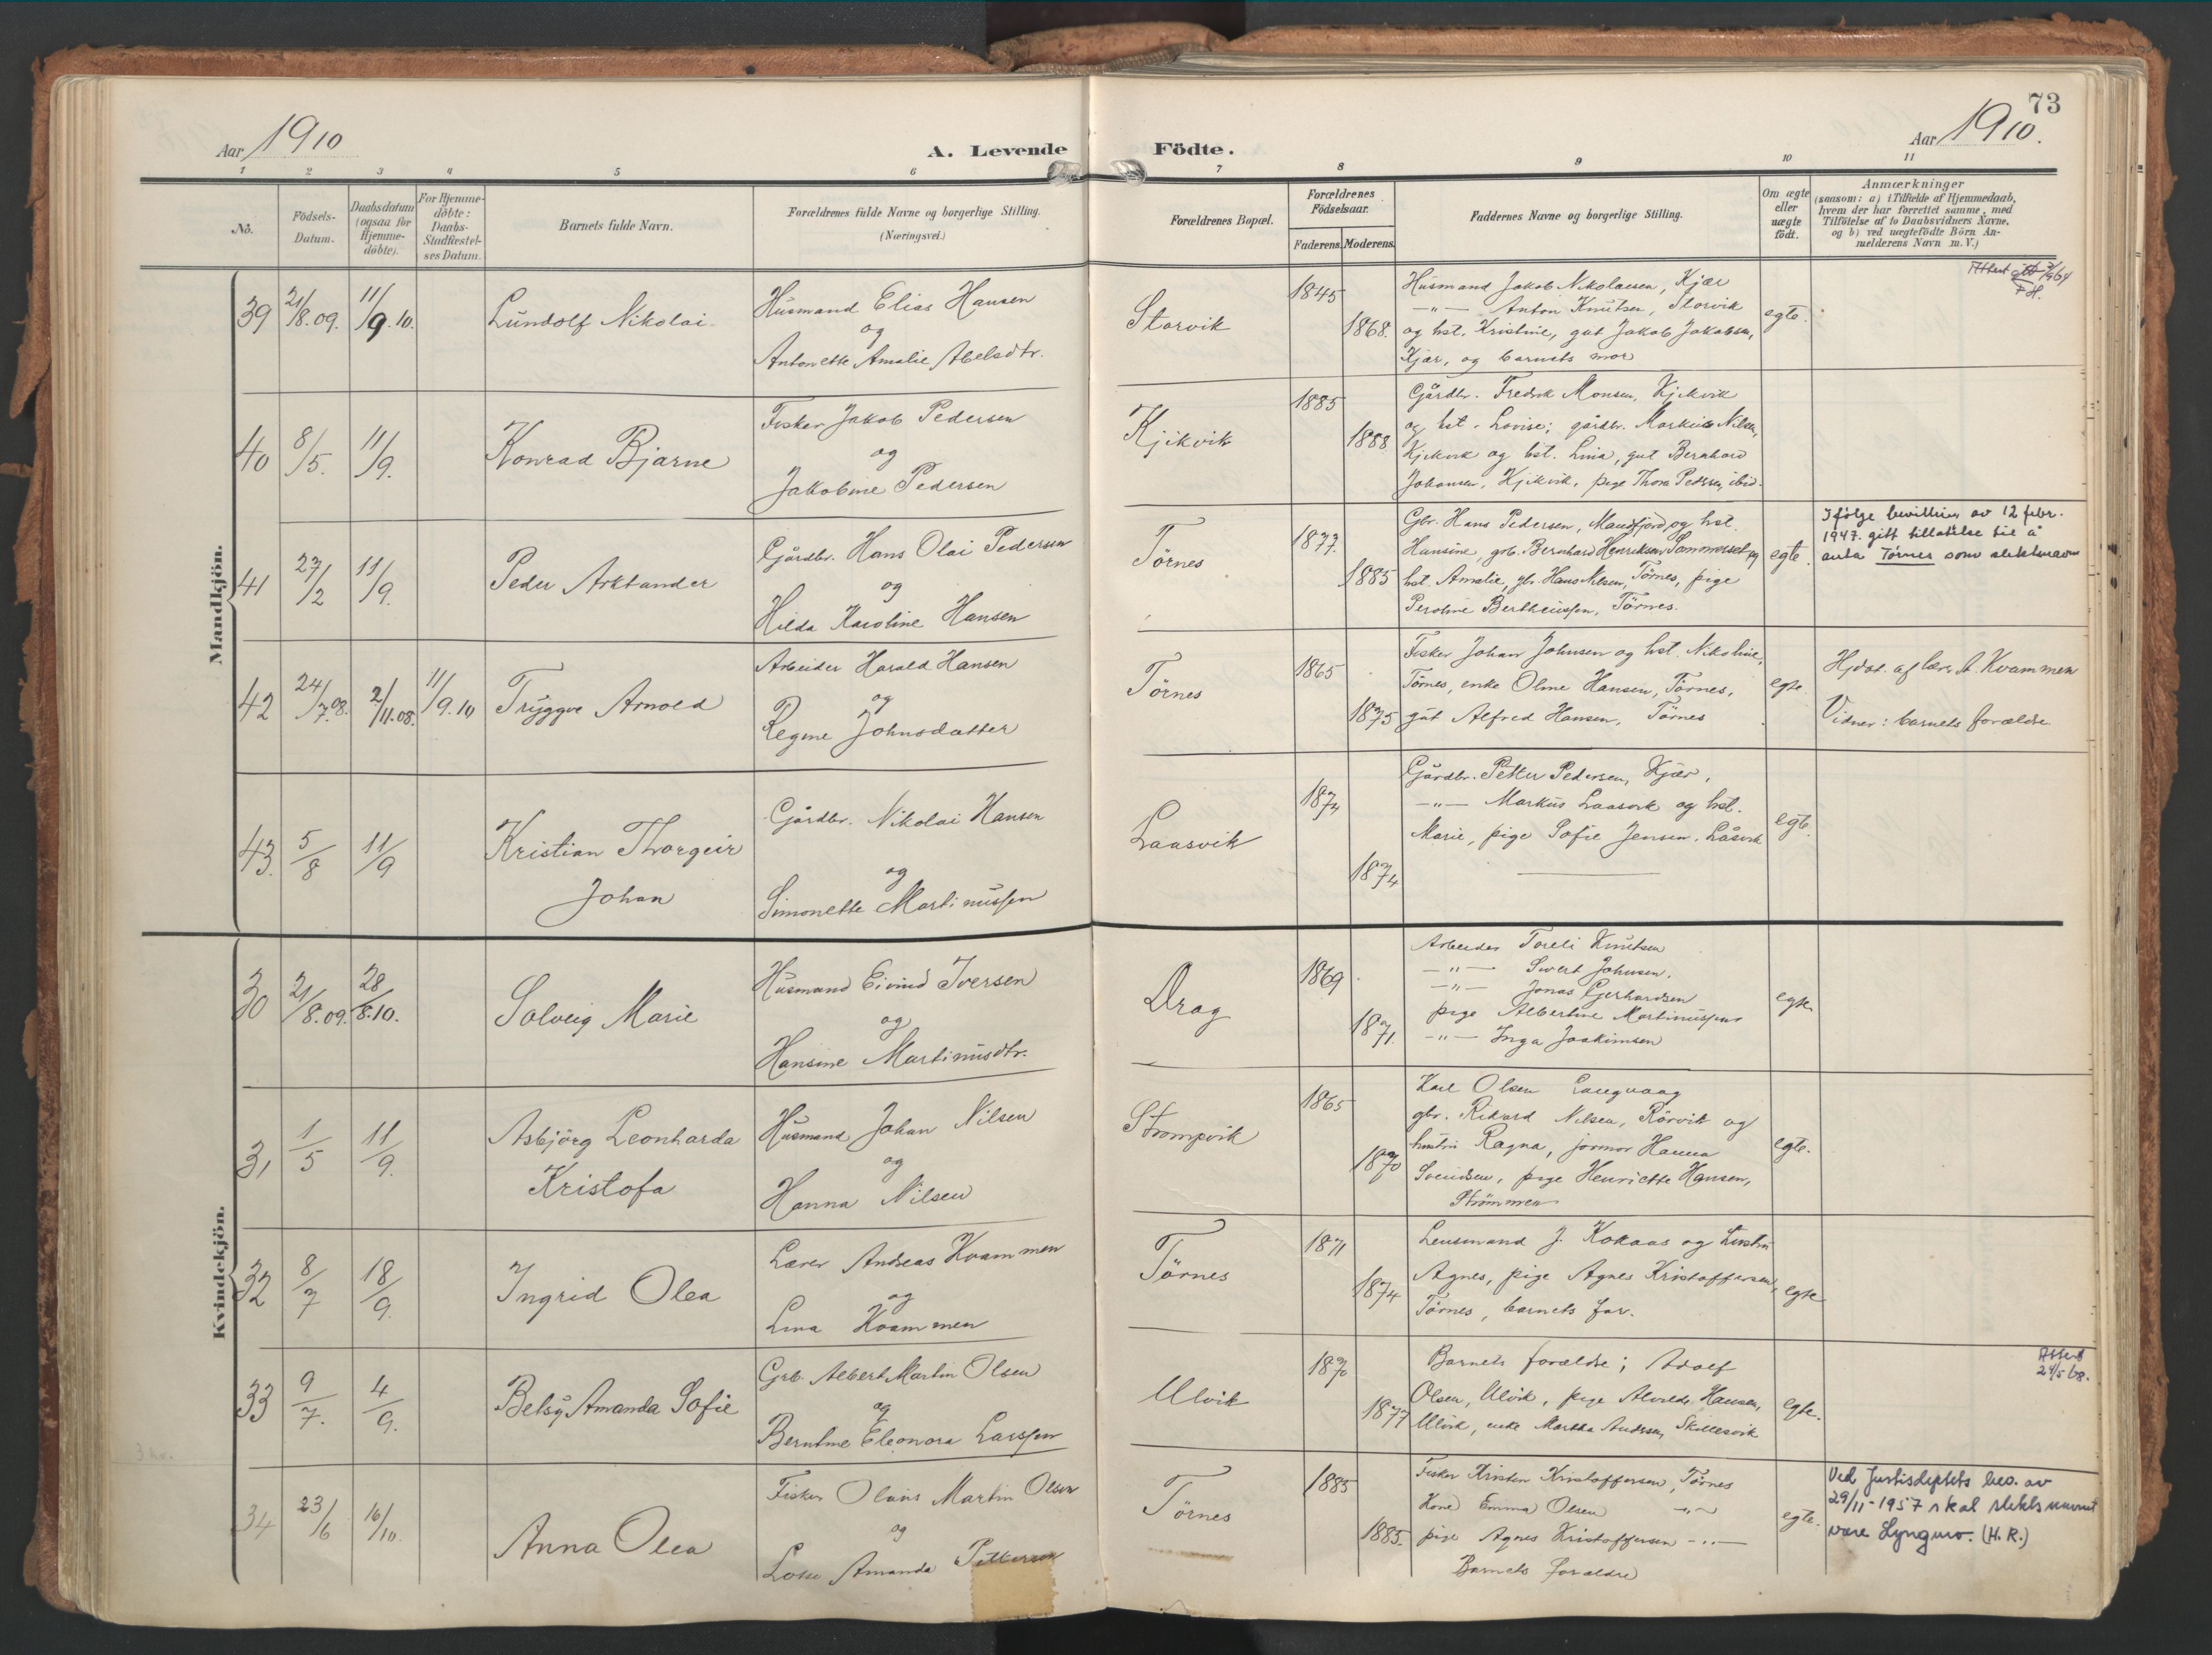 73
Aar 1910
A. Levende Födte.
Aar 1910.
1 2 3 4 5 6 7 8 9 10 11
No.
Födsels-
Datum.
Daabsdatum
(ogsaa for
Hjemme-
döbte).
For Hjemme-
döbte:
Daabs-
Stadfæstel-
ses Datum.
Barnets fulde Navn.
Forældrenes fulde Navne og borgerlige Stilling.
(Næringsvei.)
Forældrenes Bopæl.
Forældrenes
Födselsaar.
Faderens. Moderens.
Faddernes Navne og borgerlige Stilling.
Om ægte
eller
uægte
födt.
Anmærkninger
(saasom: a) i Tilfælde af Hjemmedaab,
hvem der har forrettet samme, med
Tilföielse af to Daabsvidners Navne,
og b) ved uægtefödte Börn An-
melderens Navn m. V.)
Mandkjön.
39 21/8.09. 11/9.10. Lundolf Nikolai
Husmand Elias Hansen
og
Antonette Amalie Abelsdtr.
Storvik 1845 1868.
Husmand Jakob Nikolaisen, Kjær
-"- Anton Knutsen, Storvik
og hst. Kristine, gut Jakob Jakobsen,
Kjær, og barnets mor
egte.
40 8/5. 11/9. Konrad Bjarne
Fisker Jakob Pedersen
og
Jakobine Pedersen
Kjikvik 1885 1888
Gårdbr. Fredrik Monsen, Kjikvik
og hst. Lovise; gårdbr. Markus Nilsen,
Kjikvik og hst. Lina, gut Bernhard
Johansen, Kjikvik, pige Thora Pedersen, ibid.
41 27/2 11/9. Peder Arktander
Gårdbr. Hans Olai Pedersen
og
Hilda Karoline Hansen
Törnes 1877. 1885
Gbr. Hans Pedersen, Mandfjord og hst.
Hansine, grb. Bernhard Henriksen Sommerset og
hst. Amalie, gbr. Hans Nilsen, Törnes, pige
Peroline Bertheussen, Törnes.
egte.
Ifölge bevilling av 12 febr.
1947 gitt tillatelse til å
anta Törnes som slektsnavn
42 24/7.08. 2/11.08. 11/9.10 Tryggve Arnold
Arbeider Harald Hansen
og
Regine Johnsdatter
Törnes 1865 1875
Fisker Johan Johnsen og hst. Nikoline,
Törnes, enke Oline Hansen, Törnes,
gut Alfred Hansen, Törnes
egte.
Hjdöt. af lærer A. Kvammen
Vidner: barnets forældre
43. 5/8 11/9 Kristian Thorgeir
Johan
Gårdbr. Nikolai Hansen
og
Simonette Martinussen
Laasvik 1874 1874
Gårdbr. Petter Pedersen, Kjær,
-"- Markus Laasvik og hst.
Marie, pige Sofie Jensen, Låsvik
egte.
Kvindekjön.
30 21/8.09. 28/8.10. Solveig Marie
Husmand Eivind Iversen
og
Hansine Martinusdtr.
Drag 1869 1871.
Arbeider Toreli Knutsen
-"- Sivert Johnsen.
-"- Jonas Gerhardsen
pige Albertine Martinussen
-"- Inga Joakimsen
egte.
31 1/5 11/9. Asbjörg Leonharda
Kristofa
Husmand Johan Nilsen
og
Hanna Nilsen
Strompvik 1865 1870
Karl Olsen Langvaag
gbr. Rikard Nilsen, Rörvik og
hustru Ragna, jormor Hanna
Svendsen, pige Henriette Hansen,
Strömmen
egte.
32 8/7 18/9. Ingrid Olea
Lærer Andreas Kvammen
og
Lina Kvammen
Törnes 1871 1874
Lensmand J. Kokaas og hustru
Agnes, pige Agnes Kristoffersen,
Törnes, barnets far.
egte
33 9/7. 4/9. Betsy Amanda Sofie
Grb. Albert Martin Olsen
og
Berntine Eleonora Larssen
Ulvik 1870 1877
Barnets forældre; Adolf
Olsen, Ulvik, pige Alvilde Hansen,
Ulvik, enke Martha Andersen, Skillesvik
egte.
34 23/6 16/10. Anna Olea
Fisker Olaus Martin Olsen
og
Amanda Pettersen
Törnes 1885 1885.
Fisker Kristen Kristoffersen, Törnes
Kone Emma Olsen -"-
pige Agnes Kristoffersen -"-
Barnets forældre
egte.
Ved Justisdeptets bev. av
29/11-1957 skal slektsnavnet
være Lyngmo. (H.R.)